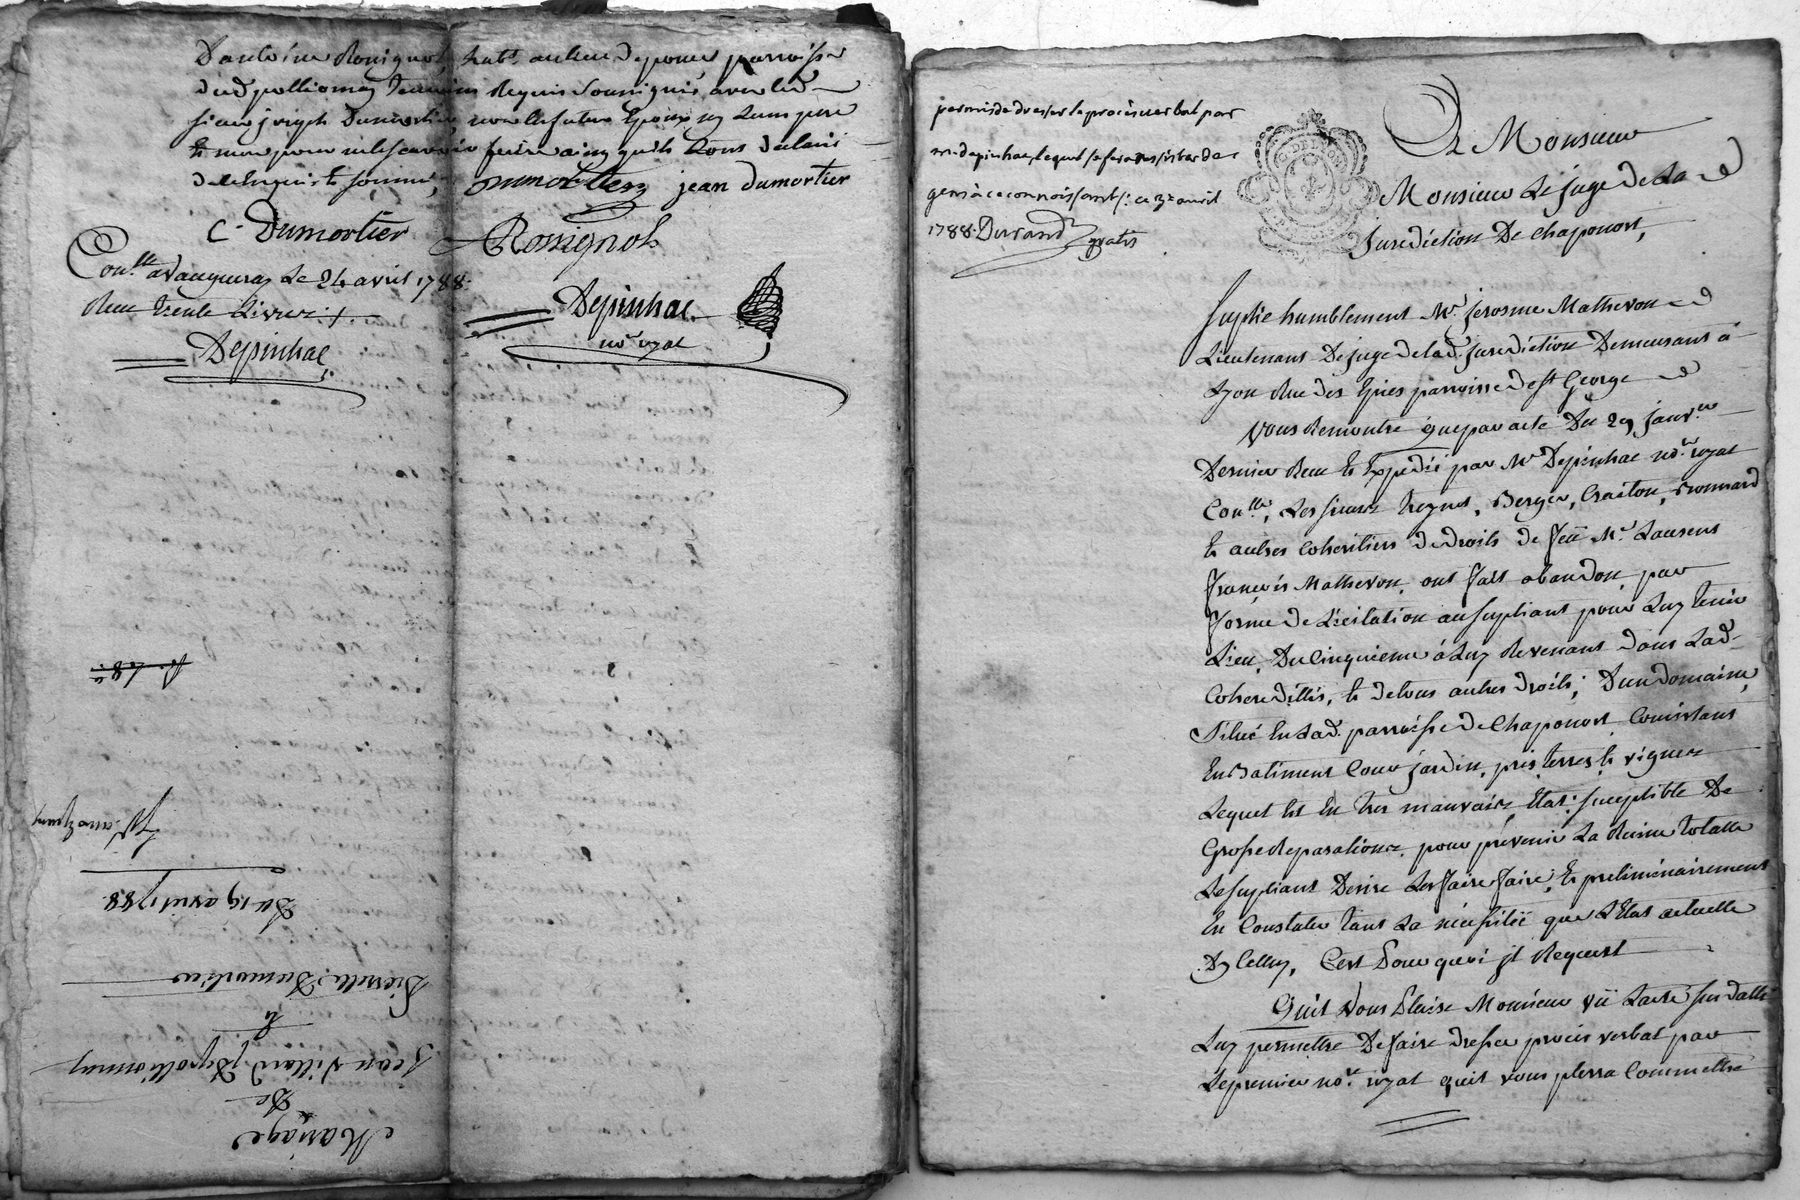 D'antoine Rossignol, habt. au lieu de ponay parroisse
dud pollionnay temoins Requis soussignés avec led
sieur joseph Dumortier, non les futurs Epoux ny Leurs pere
et mere pour ne le scavoir faire ainsy quils L'ont declaré
de ce Enquis et sommé, Dumortier jean dumortier
C. Dumortier Rossignol
Con.lle a Vaugneray Le 24 avril 1788.
Reçu trente Livres
Depinhac
Depinhac
no.re royal
Mariage
De
Jean Villard de pollionnay
&
Pierrette Dumortier
Du 19 avril 1788
permis de dresser le procès verbal par
m.e depinhac, lequel se fera assister de
gens à ce connoissants. ce 3e avril
1788. Durand
gratis
A Monsieur
Monsieur Le juge de La
Jurediction De chaponost,
Suplie humblement M.r Jerosme Mathevon
Lieutenant De juge de lad. Jurediction Demeurant à
Lyon Rue des Epies parroisse de St George
Vous Remontre que par acte Du 29 janv.er
Dernier Recu et Expedié par M.e Depinhac no.re royal
Con.lle, Les sieurs Treynet, Berger, Craiton, Bronnard
et autres Coheritiers de droits de feu M.r Laurent
François Mathevon, ont fait abandon par
forme de Licitation au supliant pour Luy tenir
Lieu, Du Cinquieme à Luy Revenant dans Lad.
Coheredittés, et de tous autres droits; D'un Domaine,
Situé En Lad. parroisse de Chaponost Consistant
En Batiment Cour jardin, prés terres et vignes
Lequel Est En tres mauvais Etat: suceptible De
Grosse Reparations, pour prevenir La Ruine totalle
Le supliant Desire Les faire faire, Et preliminairement
En Constater tant La nécessité que L'Etat actuelle
D'y Celluy, C'est Pourquoi jl Requiert
Qu'il Vous Plaise Monsieur vû L'acte sus datté
Luy permettre De faire dresser procès verbal par
Le premier no.re royal qu'il vous plerra Commettre